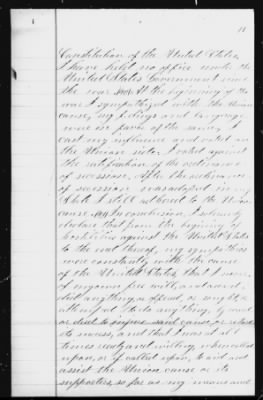 Constitution of the United States,
I have held no office under the
United States Government since
the war. At the beginning of the
war I sympathized with the Union
cause, my feelings and language
were in favor of the same, I
cast my influence and vote on
the Union side, I voted against
the ratification of the ordinance
of secession, After the ordinance
of secession was adopted in my
State I still adhered to the Union
cause. In conclusion, I solemnly
declare that from the beginning of
hostilities against the United States
to the end thereof, my sympathies
were constantly with the cause
of the United States, that I never,
of my own free will and accord
did anything, or offered, or sought, or
attempted to do anything, by word
or deed to injure said cause, or retard
its success, and that I was at all
times ready and willing, when called
upon, or if called upon, to aid and
assist the Union cause or its
supporters, so far as my means and